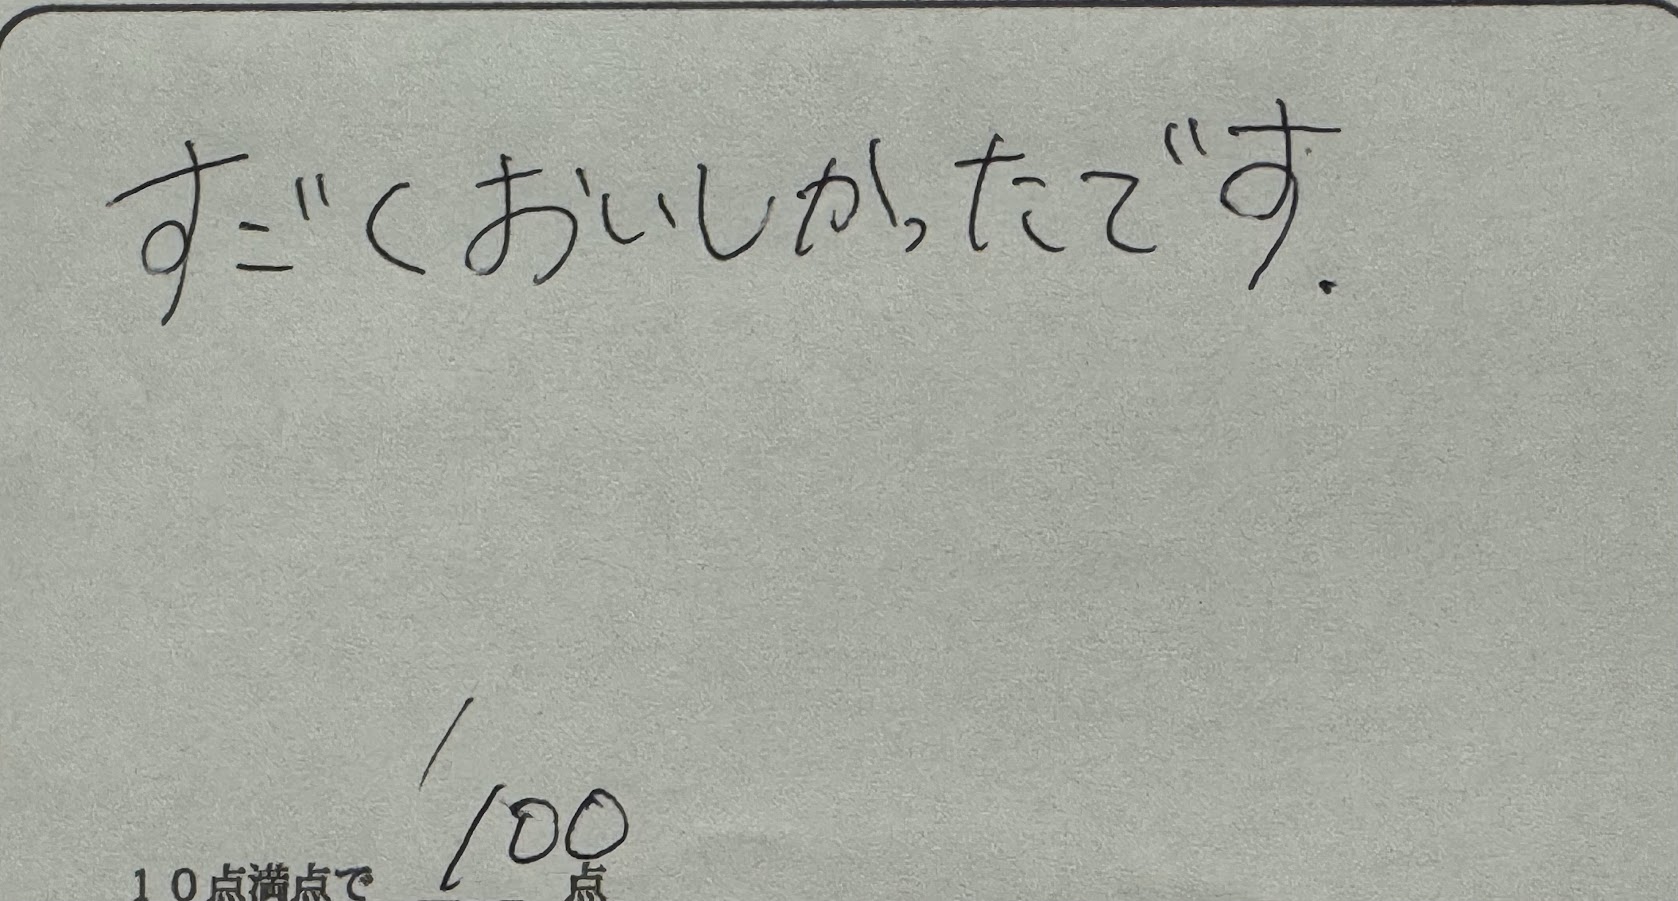 すごくおいしかったです.
10点満点で 100 点